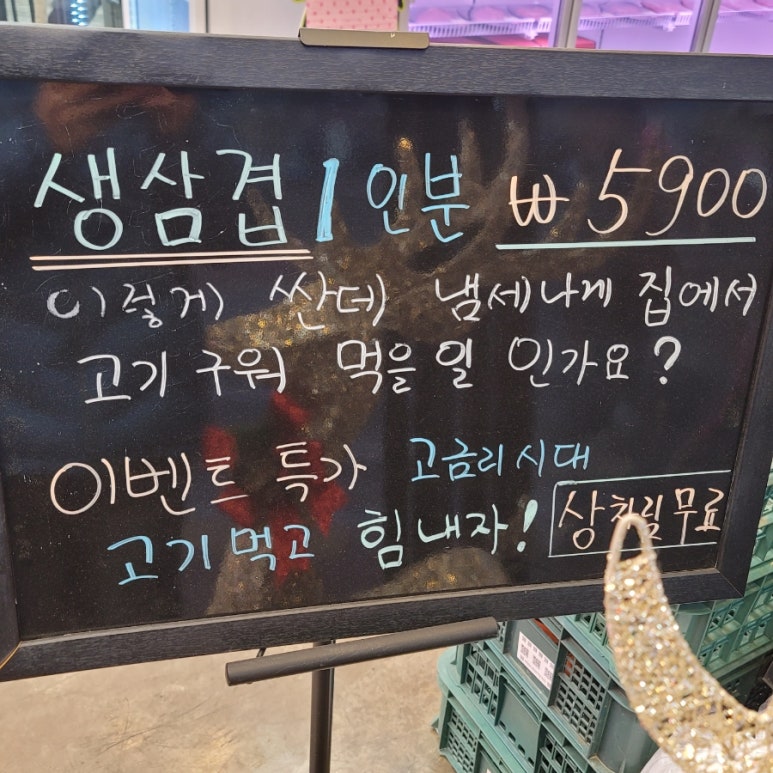 생삼겹 1인분 ₩5900
이렇게 싼데 냄세나게 집에서
고기 구워 먹을 일 인가요?
이벤트 특가 고금리시대
고기먹고 힘내자! 상차림무료